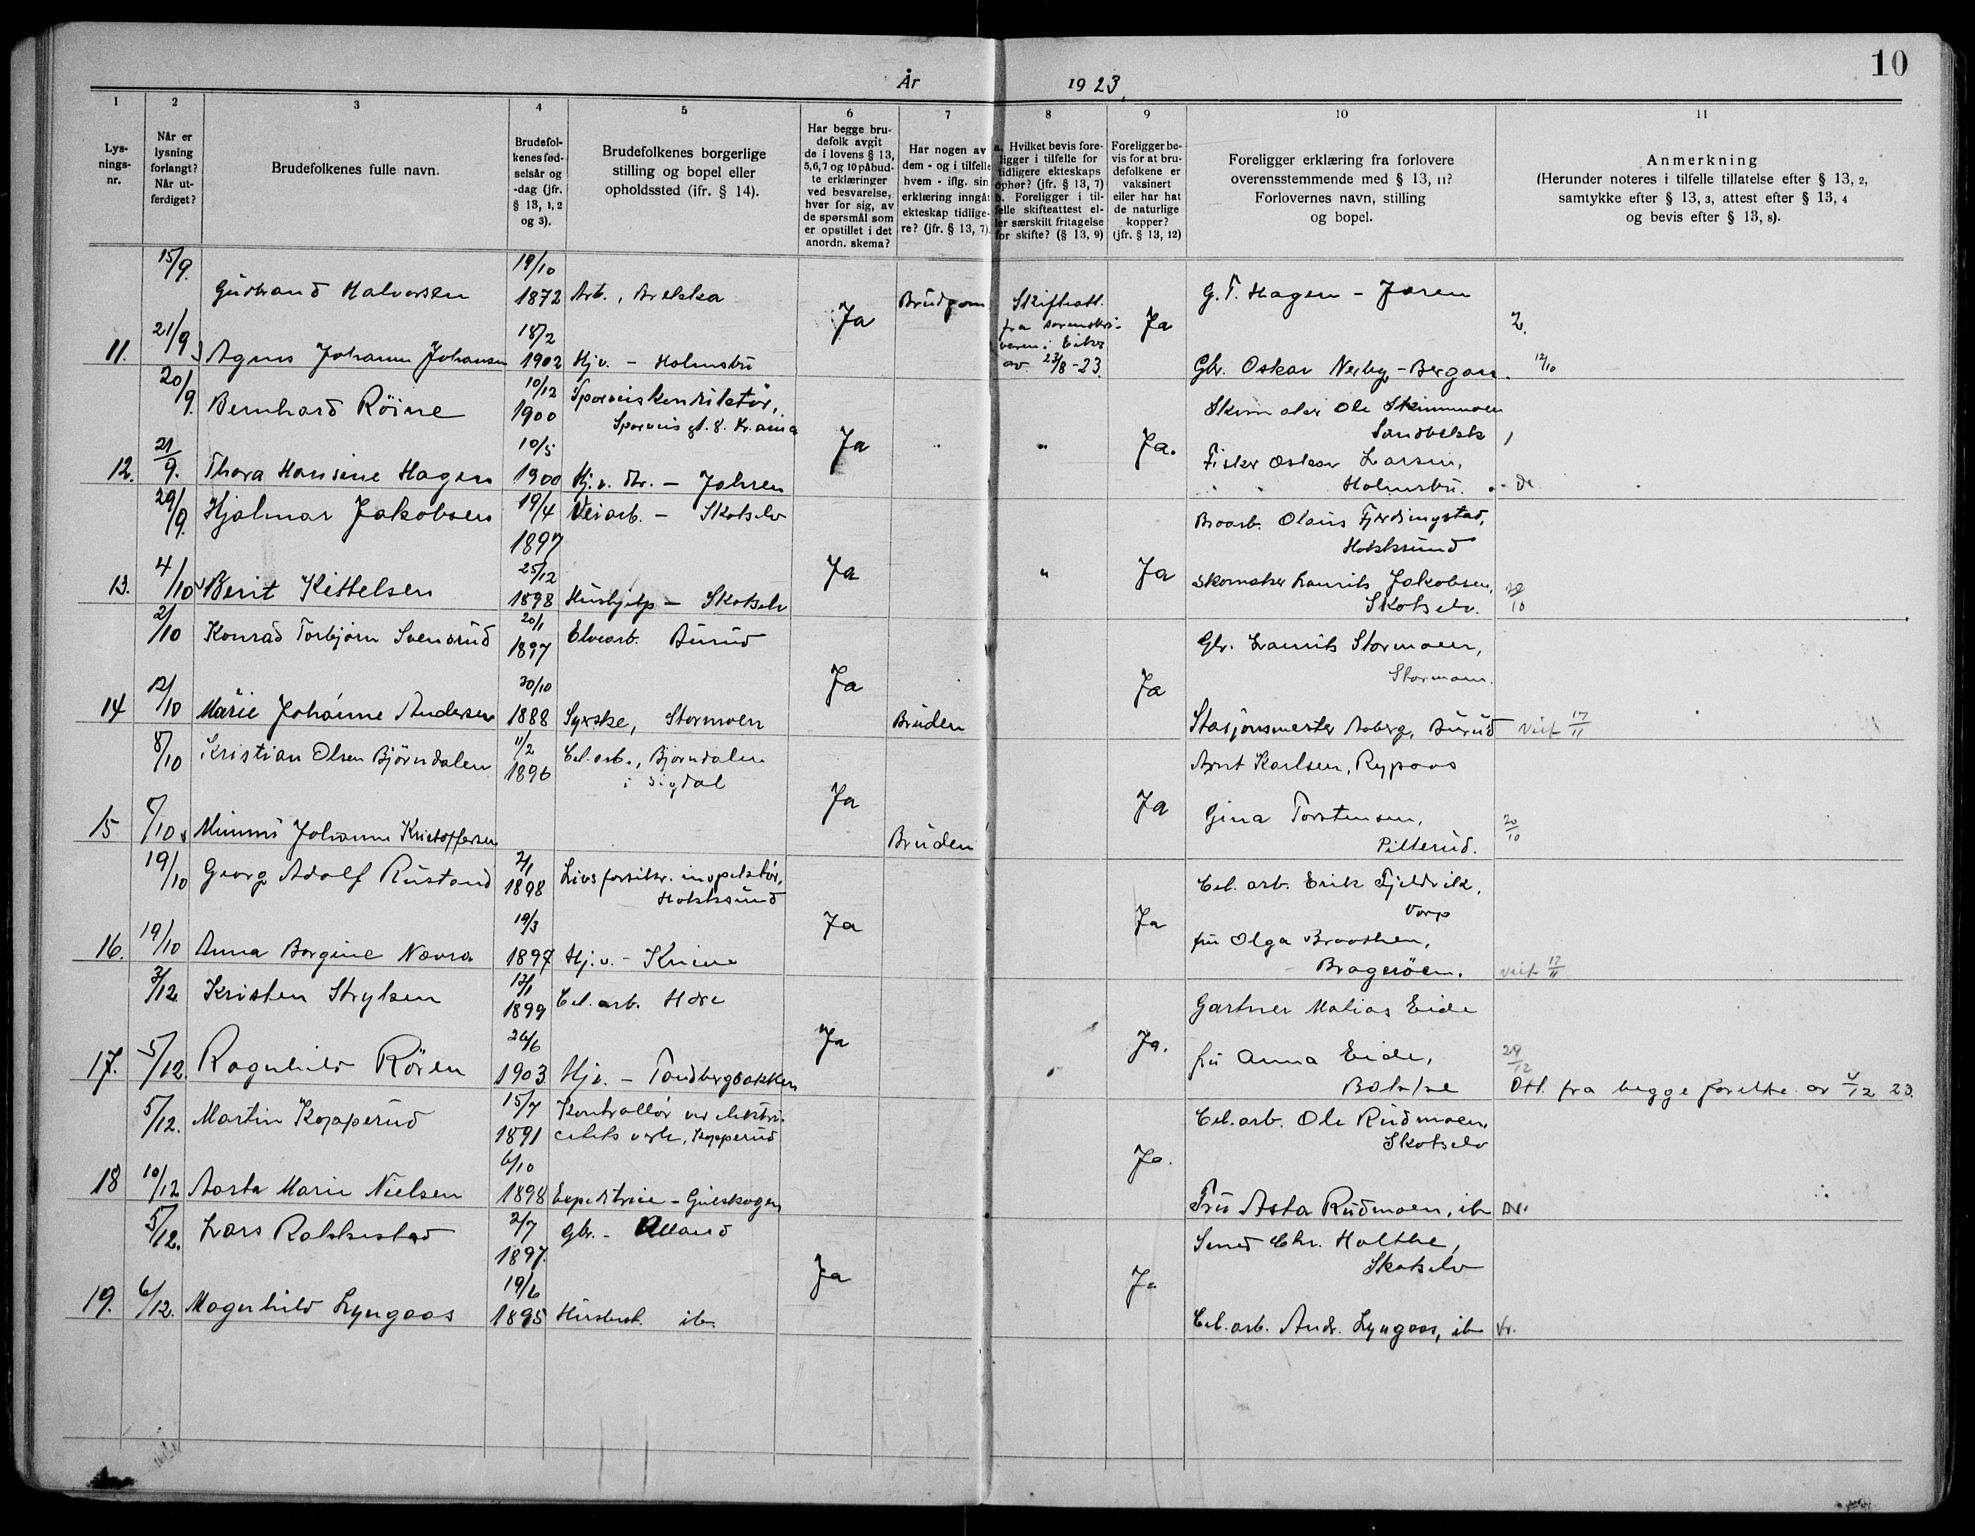 10
År 1923.
1 2 3 4 5 6 7 8 9 10 11
Lys-
nings-
nr.
Når er
lysning
forlangt?
Når ut-
ferdiget?
Brudefolkenes fulle navn.
Brudefol-
kenes fød-
selsår og
-dag (jfr.
§ 13, 1, 2
og 3).
Brudefolkenes borgerlige
stilling og bopel eller
opholdssted (ifr. § 14).
Har begge bru-
defolk avgit
de i lovens § 13,
5,6,7 og 10 påbud-
te erklæringer
ved besvarelse,
hver for sig, av
de spørsmål som
er opstillet i det
anordn. skema?
Har nogen av
dem - og i tilfelle
hvem - iflg. sin
erklæring inngåt
ekteskap tidlige-
re? (jfr. § 13, 7).
a. Hvilket bevis fore-
ligger i tilfelle for
tidligere ekteskaps
ophør? (jfr. § 13, 7)
b. Foreligger i til-
felle skifteattest el-
ler særskilt fritagelse
for skifte? (§ 13, 9)
Foreligger be-
vis for at bru-
defolkene er
vaksinert
eller har hat
de naturlige
kopper?
(jfr. § 13, 12)
Foreligger erklæring fra forlovere
overensstemmende med § 13, 11?
Forlovernes navn, stilling
og bopel.
Anmerkning
(Herunder noteres i tilfelle tillatelse efter § 13, 2,
samtykke efter § 13, 3, attest efter § 13, 4
og bevis efter § 13, 8).
15/9. Gudbrand Halvorsen 19/10 1872 Arb., Brekka Ja Brudgom Skifteatt. Ja G. T. Hagen - Jaren
fra sorenskri-
veren i Eiker
av 23/8-23.
11. 21/9 Agnes Johanne Johansen 18/2 1902 Hj.v. - Holmsbu Gbr. Oskar Nerby - Bergan. 12/10
20/9. Bernhard Röine 10/12 1900 Sporveiskonduktør, Ja " Ja. Ole
Sporveisgt. 8. Kr.ania
12. 21/9. Thora Hansine Hagen 10/5 1900 Hj. v. - Jahren Fisker Oskar Larsen,
Holmsbu.
29/9. Hjalmar Jakobsen 19/4 1897 Veiarb. - Skotselv Ja " Ja Olaus Fjerdingstad,
Hokksund
13. 4/10 Berit Kittelsen 25/12 1898 Hushjelp - Skotselv Skomaker Laurits Jakobsen,
Skotselv. 20/10
2/10 Konrad Torbjørn Svensrud 20/1 1897 Elvearb. Burud Ja Ja Gbr. Laurits Stormoen,
Stormoen.
14 12/10 Marie Johanne Andersen 30/10 1888 Syerske, Stormoen Bruden Stasjonsmester Aaberg, Burud Viet 17/11
8/10 Kristian Olsen Björndalen 11/2 1896 Cel. arb., Bjørndalen Ja Ja Arnt Karlsen, Rypaas
i Sigdal
15 9/10 Mimmi Johanne Kristoffersen Bruden Gina Torstensen,
Pilterud. 20/10
19/10 Georg Adolf Rustand 2/1 1898 Livsforsikr. inspektør, Ja Ja Cel. arb. Erik Fjeldvik,
Hokksund Vorp
16. 19/10 Anna Borgine Nævra 19/3 1897 Hj.v. - Knive fru Olga Braathen,
Bragerøen. Viet 17/11
3/12. Kristen Stryken 13/1 1899 Cel. arb. Hære Ja Ja. Gartner Matias Eide
17. 5/12. Ragnhild Rören 26/6 1903. Hj.v. - Tandbergbakken fru Anna Eide,
Bakke 29/12 Att. fra begge foreldre av 4/12 23.
5/12. Martin Kopperud 15/7 1891 Kontrollør ved elektri-
citets verk, Kopperud Ja. Cel. arb. Ole Rudmoen,
Skotselv
18 10/12 Aasta Marie Nielsen 6/10 1898 Expeditrice - Gulskogen Fru Asta Rudmoen, ib
5/12. Lars Rakkestad 2/7 1897. Gbr. - Ja Ja Smed Chr. Holthe,
Skotselv
19. 6/12. Magnhild Lyngaas 19/6 1895 Husbest. ib. Cel. arb. Andr. Lyngaas, ib Vr.